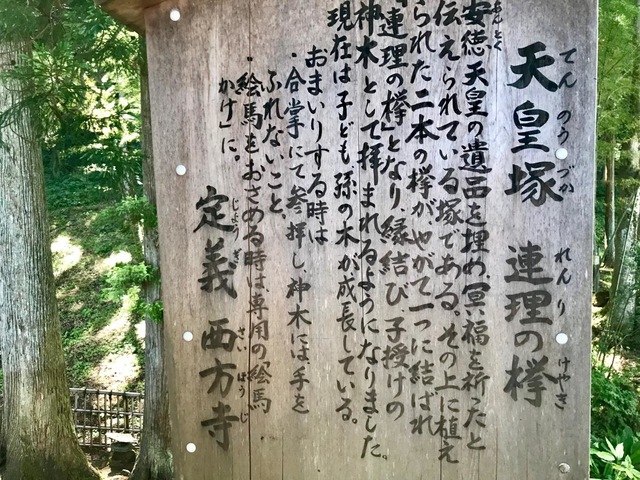 天皇塚 連理の欅
てんのうづか れんり けやき
安徳天皇の遺品を埋め、冥福を祈ったと
あんとく
伝えられている塚である。その上に植え
られた二本の欅がやがて一つに結ばれ
「連理の欅」となり縁結び子授けの
神木として拝まれるようになりました。
現在は子ども孫の木が成長している。
おまいりする時は
・合掌にて参拝し、神木には、手を
ふれないこと、
・絵馬をおさめる時は、専用の絵馬
かけ」に。
定義 西方寺
じょうぎ さいほうじ